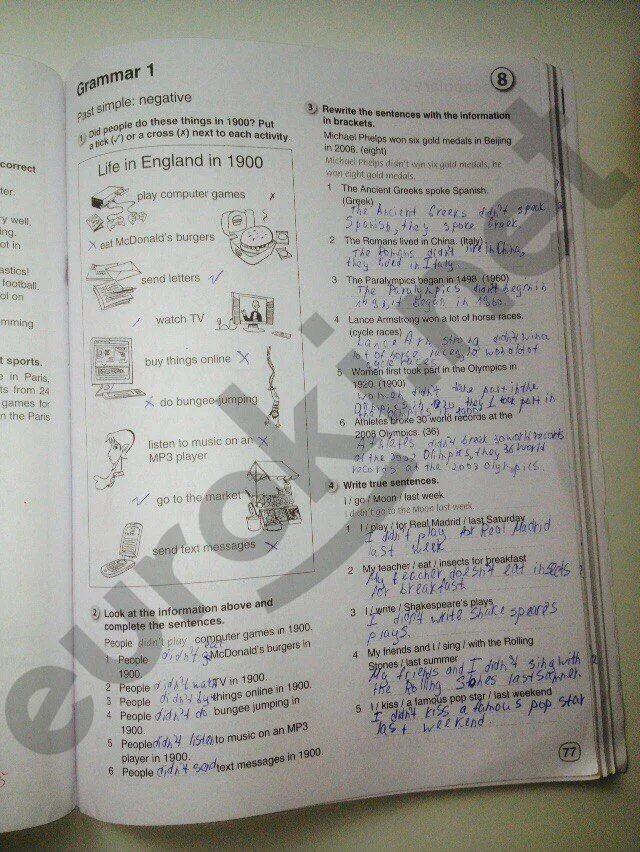 correct
ter.
ry well,
ing.
ot in
astics!
football.
ol on
mming
t sports.
e in Paris,
ts from 24
games for
n the Paris
Grammar 1
8
Past simple: negative
1 Did people do these things in 1900? Put
a tick (✓) or a cross (✗) next to each activity.
Life in England in 1900
play computer games ✗
✗ eat McDonald's burgers
send letters ✓
watch TV
buy things online ✗
✗ do bungee-jumping
listen to music on an ✗
MP3 player
✓ go to the market
send text messages ✗
2 Look at the information above and
complete the sentences.
People didn't play computer games in 1900.
1 People didn't eat McDonald's burgers in
1900.
2 People didn't watch TV in 1900.
3 People didn't by things online in 1900.
4 People didn't do bungee jumping in
1900.
5 People didn't listen to music on an MP3
player in 1900.
6 People didn't send text messages in 1900.
3 Rewrite the sentences with the information
in brackets.
Michael Phelps won six gold medals in Beijing
in 2008. (eight)
Michael Phelps didn't win six gold medals, he
won eight gold medals.
1 The Ancient Greeks spoke Spanish.
(Greek)
The Ancient Greeks didn't speak
Spanish, they spoke Greek.
2 The Romans lived in China. (Italy)
The Romans didn't live in China,
they lived in Italy.
3 The Paralympics began in 1498. (1960)
The Paralympics didn't began in
it began in 1960.
4 Lance Armstrong won a lot of horse races.
(cycle races)
Lance Arm strong didn't win a
lot of horse races,
5 Women first took part in the Olympics in
1920. (1900)
Women didn't take part in the
Olimpics in 1920, they took part in
6 Athletes broke 30 world records at the
2008 Olympics. (36)
Athletes didn't break 30 world records
at the Olimpics, they 36 world
records at the Olympics.
4 Write true sentences.
I / go / Moon / last week
I didn't go to the Moon last week.
1 I / play / for Real Madrid / last Saturday
I didn't play for Real Madrid
last week
2 My teacher / eat / insects for breakfast
My teacher doesn't eat insects
for breakfast
3 I / write / Shakespeare's plays
I didn't write Shakespeares
plays.
4 My friends and I / sing / with the Rolling
Stones / last summer
My friends and I didn't sing with
the Rolling Stones last summer.
5 I / kiss / a famous pop star / last weekend
I didn't kiss a famous pop star
last weekend.
77
eurokinet